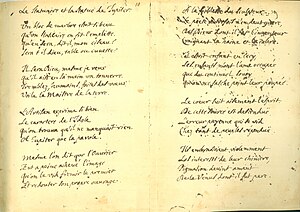 Le Statuaire et la Statue de Jupiter
Un bloc de marbre était si beau
Qu'un Statuaire en fit l'emplette.
Qu'en fera, dit-il, mon ciseau?
Sera-t-il Dieu, table ou cuvette?
Il sera Dieu, même je veux
Qu'il ait en sa main un tonnerre.
Tremblez, humains, faites des vœux
Voilà le Maître de la terre.
L'Artisan exprima si bien
Le caractère de l'Idole
Qu'on trouva qu'il ne manquait rien
A Jupiter que la parole.
Même l'on dit que l'Ouvrier
Eut à peine achevé l'image
Qu'on le vit frémir le premier
Et redouter son propre ouvrage.
A la faiblesse du Sculpteur
Le poète autrefois n'en dut guère
Des Dieux dont il fut l'inventeur
Craignant la haine et la colère.
Il était enfant en ceci
Les enfants n'ont l'âme occupée
Que du continuel souci
Qu'on ne fâche point leur poupée.
Le cœur suit aisément l'esprit.
De cette source est descendue
L'erreur payenne qui se vit
Chez tant de peuples répandue
Ils embrassaient violemment
Les intérêts de leur chimère.
Pigmalion devint amant
De la Vénus dont il fut père.